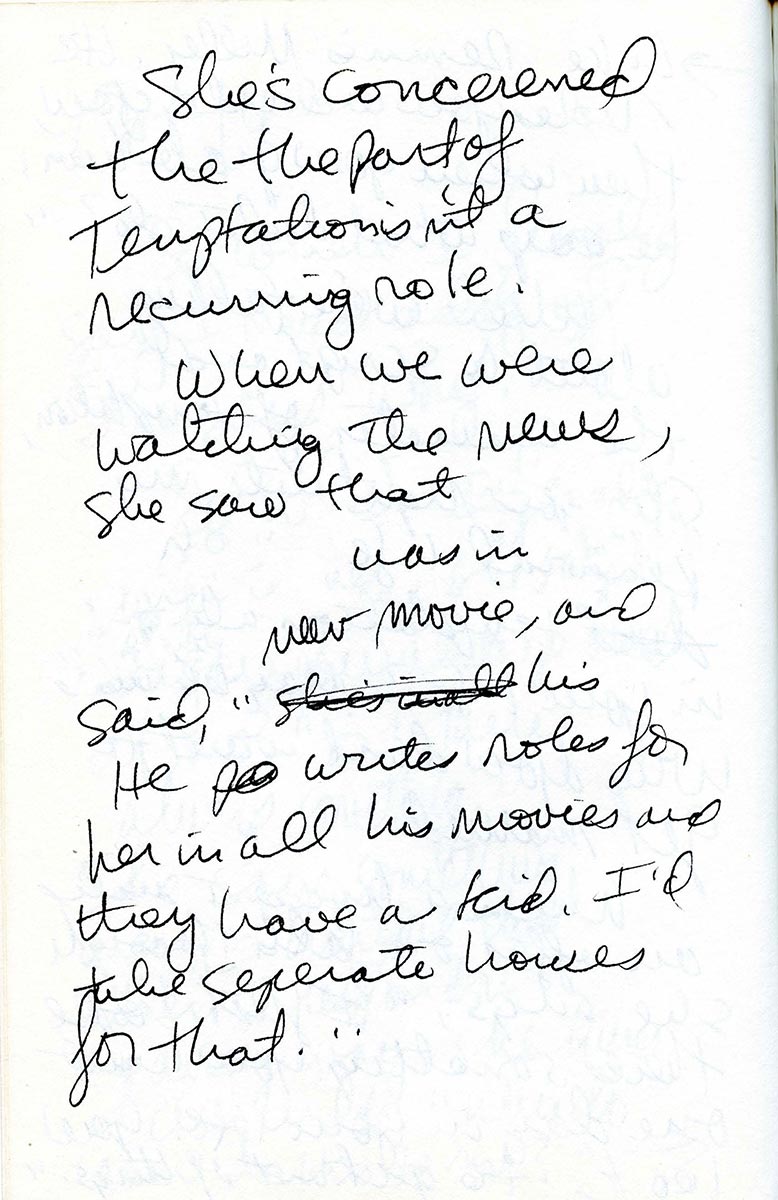 She's concerened
the the part of
Temptation isn't a
recurring role.
When we were
watching the news,
she saw that
was in
new movie, and
said, " she's in all his
He writes roles for
her in all his movies and
they have a kid. I'd
take seperate houses
for that."